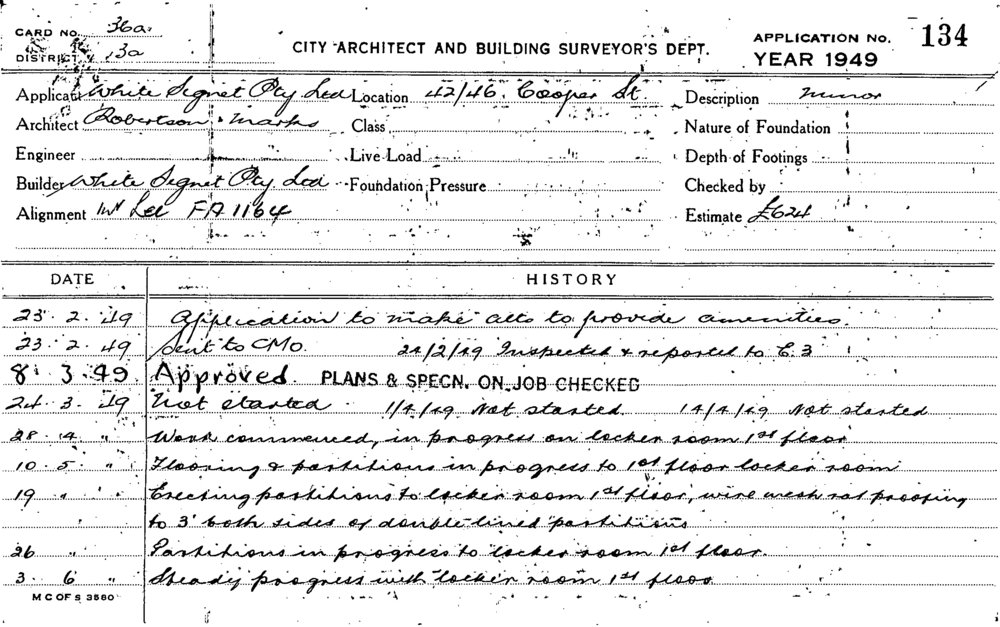 CARD No. 36a.
DISTRICT 13a
CITY ARCHITECT AND BUILDING SURVEYOR'S DEPT.
APPLICATION No. 134
YEAR 1949
Applicant White Signet Pty Ltd Location 42/46 Cooper St. Description minor
Architect Robertson & Marks Class Nature of Foundation
Engineer Live Load Depth of Footings
Builder White Signet Pty Ltd Foundation Pressure Checked by
Alignment Lee FA 1164 Estimate £624
DATE HISTORY
23.2.49 Application to make alts to provide amenities.
23.2.49 Sent to CMO. 24/2/49 Inspected & reported to C.3
8.3.49. Approved. PLANS & SPECN. ON JOB CHECKED
24.3.49 Not started 1/4/49 Not started. 14/4/49 Not started
28.4 " Work commenced, in progress on locker room 1st floor
10.5. " Flooring & partitions in progress to 1st floor locker room
19 " " Erecting partitions to locker room 1st floor, wire mesh rat proofing
to 3' both sides of double lined partitions
26 " Partitions in progress to locker room 1st floor.
3.6 " Steady progress with locker room 1st floor
M C OF S 3580